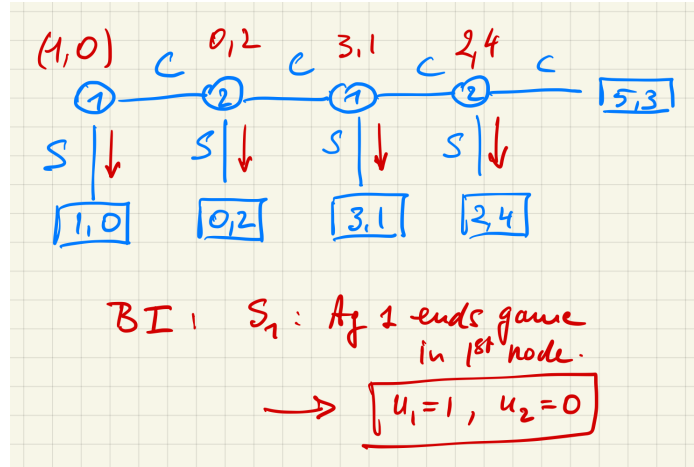 (1,0) 0,2 3,1 2,4
C C C C
1 2 1 2 5,3
S S S S
1,0 0,2 3,1 2,4
BI: S₁: Ag 1 ends game
in 1st node.
→ u₁=1, u₂=0